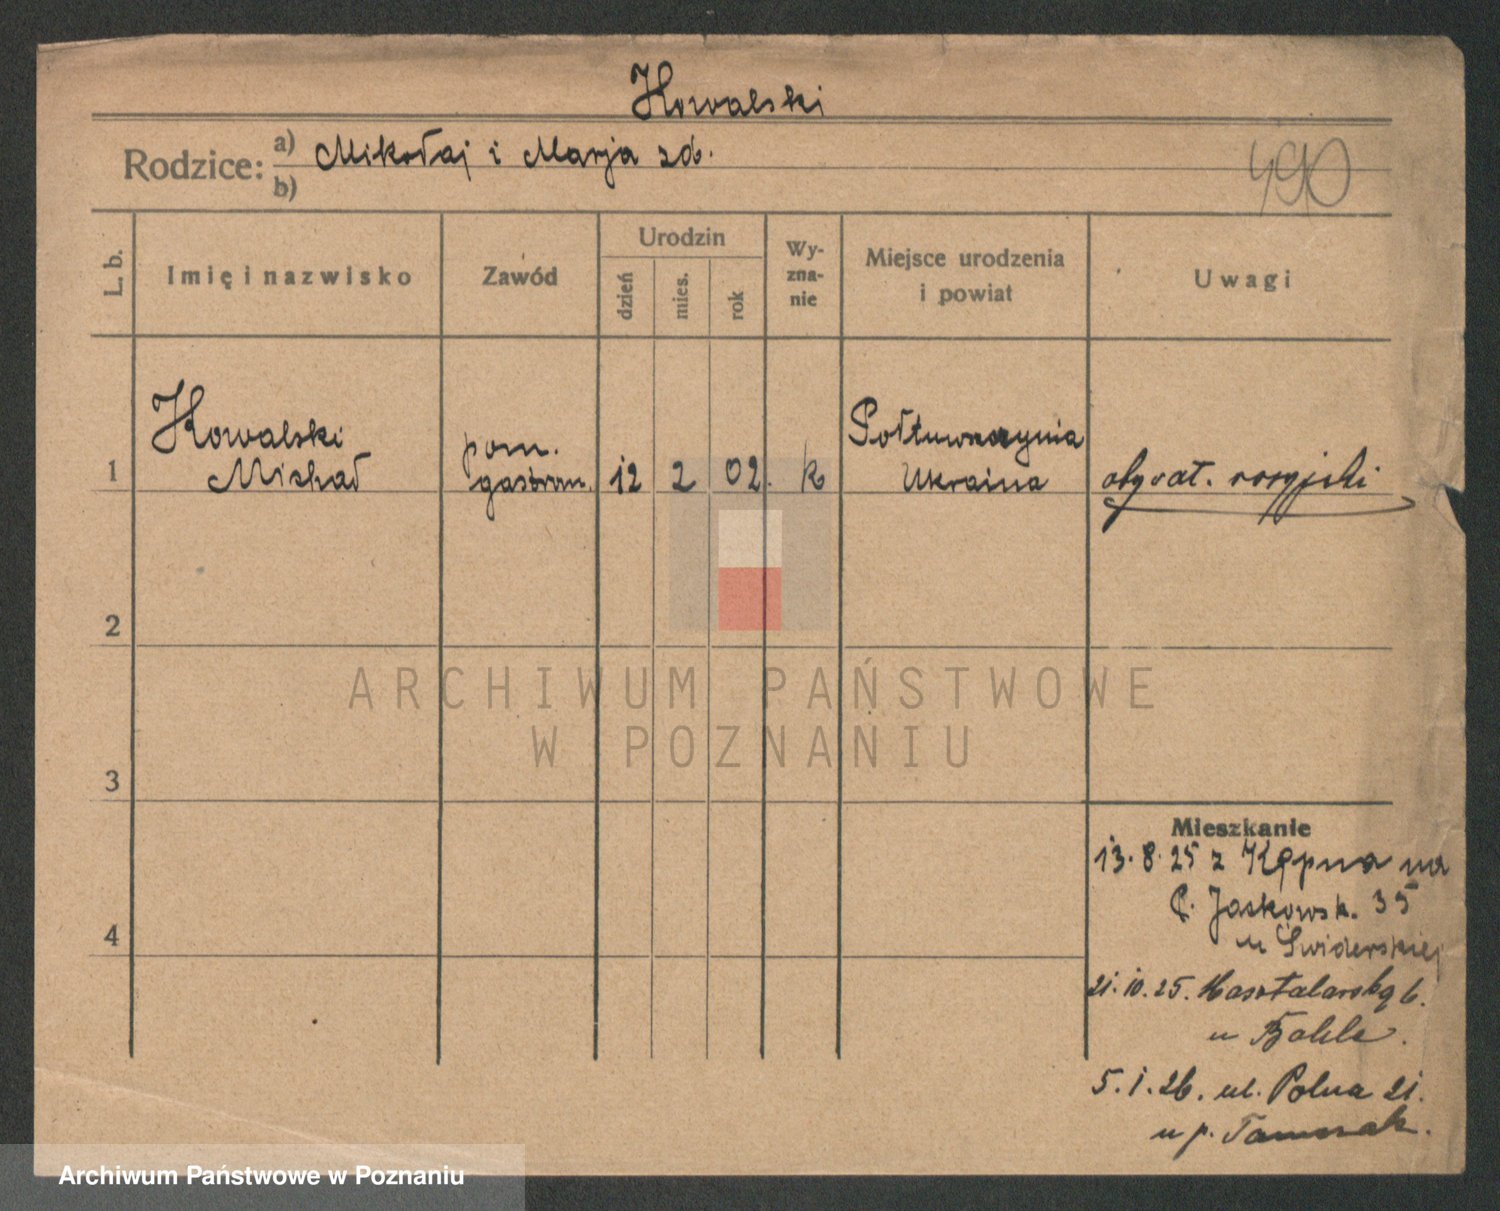 Kowalski
Rodzice: a) Mikołaj i Marja zd.
b)
490
L. b.
Imię i nazwisko
Zawód
Urodzin
dzień
mies.
rok
Wy-
zna-
nie
Miejsce urodzenia
i powiat
Uwagi
1
Kowalski
Michał
pom.
gastron.
12
2
02.
k
Ukraina
obywat. rosyjski
2
3
4
Mieszkanie
13.8.25 z Kępna na
P. Jackowsk. 35
u Świderskiej
21.10.25. 6.
u
5.1.26. ul. Polna 21.
u p.
ARCHIWUM PAŃSTWOWE
W POZNANIU
Archiwum Państwowe w Poznaniu